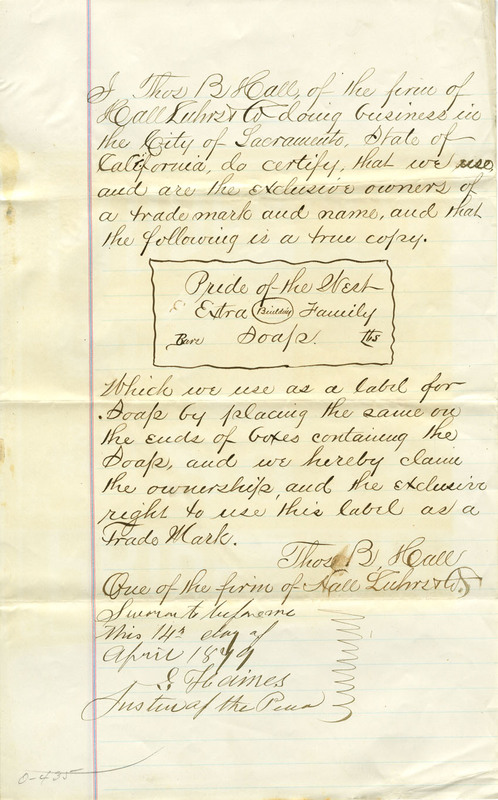 I Thos B Hall, of the firm of
Hall Luhrs & Co doing business in
the City of Sacramento, State of
California, do certify, that we use,
and are the exclusive owners of
a trade mark and name, and that
the following is a true copy.
Pride of the West
Extra Building Family
Bars Soap. lbs
Which we use as a label for
Soap by placing the same on
the ends of boxes containing the
Soap, and we hereby claim
the ownership, and the exclusive
right to use this label as a
Trade Mark.
Thos B Hall
One of the firm of Hall Luhrs & Co.
Sworn to before me
this 14th day of
April 1879
Haines
Justice of the Peace
0-435